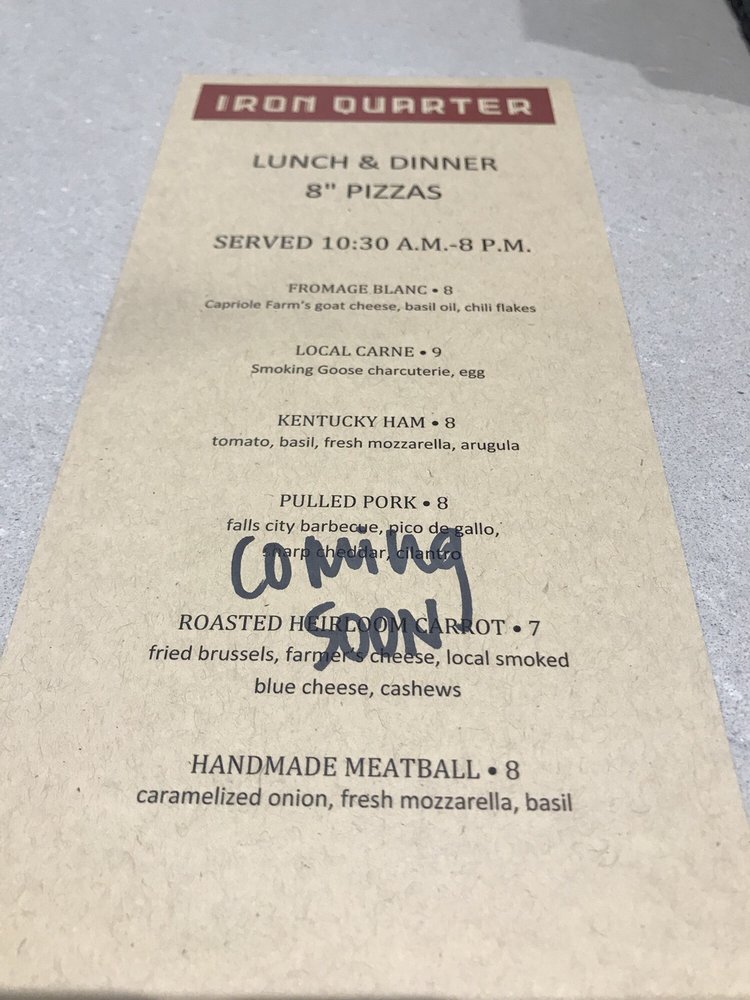 IRON QUARTER
LUNCH & DINNER
8" PIZZAS
SERVED 10:30 A.M.-8 P.M.
FROMAGE BLANC • 8
Capriole Farm's goat cheese, basil oil, chili flakes
LOCAL CARNE • 9
Smoking Goose charcuterie, egg
KENTUCKY HAM • 8
tomato, basil, fresh mozzarella, arugula
PULLED PORK • 8
falls city barbecue, pico de gallo,
sharp cheddar, cilantro
Coming
SOON
ROASTED HEIRLOOM CARROT • 7
fried brussels, farmer's cheese, local smoked
blue cheese, cashews
HANDMADE MEATBALL • 8
caramelized onion, fresh mozzarella, basil